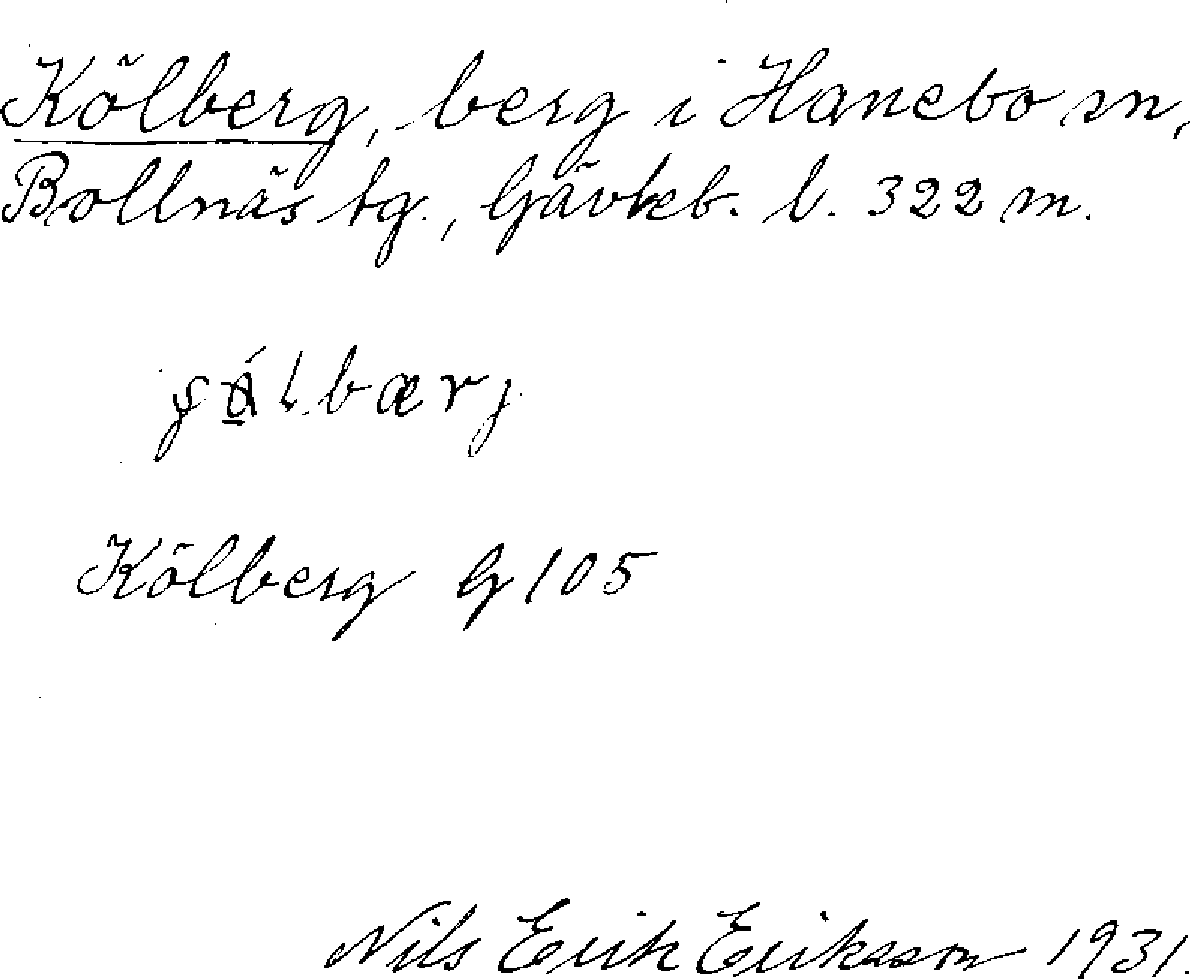 Kölberg, berg i Hanebo sn,
Bollnäs tg., Gävleb. l. 322 m.
Kölberg G 105
Nils Erik Eriksson 1931